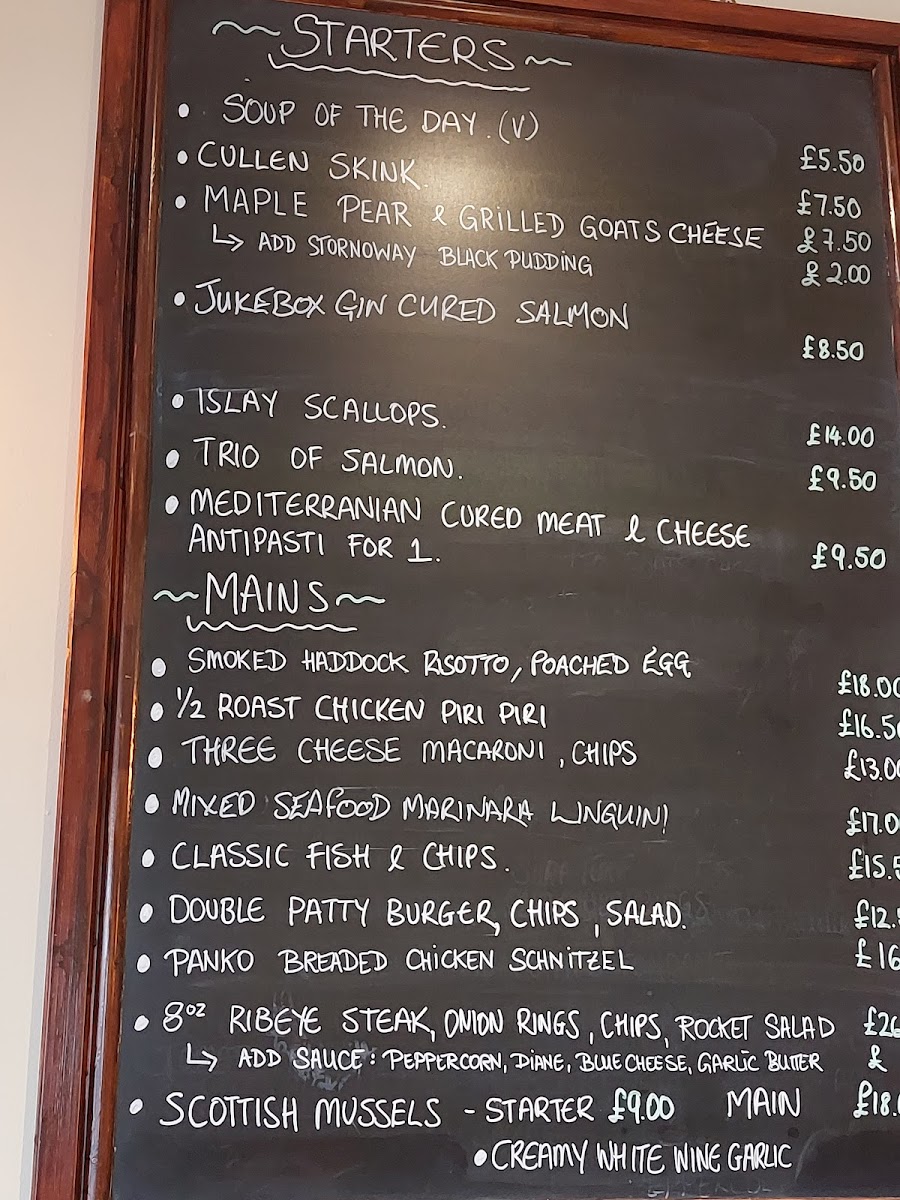 ~STARTERS~
• SOUP OF THE DAY. (V) £5.50
• CULLEN SKINK. £7.50
• MAPLE PEAR & GRILLED GOATS CHEESE £7.50
↳ ADD STORNOWAY BLACK PUDDING £2.00
• JUKEBOX GIN CURED SALMON £8.50
• ISLAY SCALLOPS. £14.00
• TRIO OF SALMON. £9.50
• MEDITERRANIAN CURED MEAT & CHEESE
ANTIPASTI FOR 1. £9.50
~MAINS~
• SMOKED HADDOCK RISOTTO, POACHED EGG £18.00
• 1/2 ROAST CHICKEN PIRI PIRI £16.50
• THREE CHEESE MACARONI, CHIPS £13.00
• MIXED SEAFOOD MARINARA LINGUINI £17.0
• CLASSIC FISH & CHIPS. £15.5
• DOUBLE PATTY BURGER, CHIPS, SALAD. £12.
• PANKO BREADED CHICKEN SCHNITZEL £16
• 8oz RIBEYE STEAK, ONION RINGS, CHIPS, ROCKET SALAD £26
↳ ADD SAUCE: PEPPERCORN, DIANE, BLUE CHEESE, GARLIC BUTTER £
• SCOTTISH MUSSELS - STARTER £9.00 MAIN £18.
• CREAMY WHITE WINE GARLIC